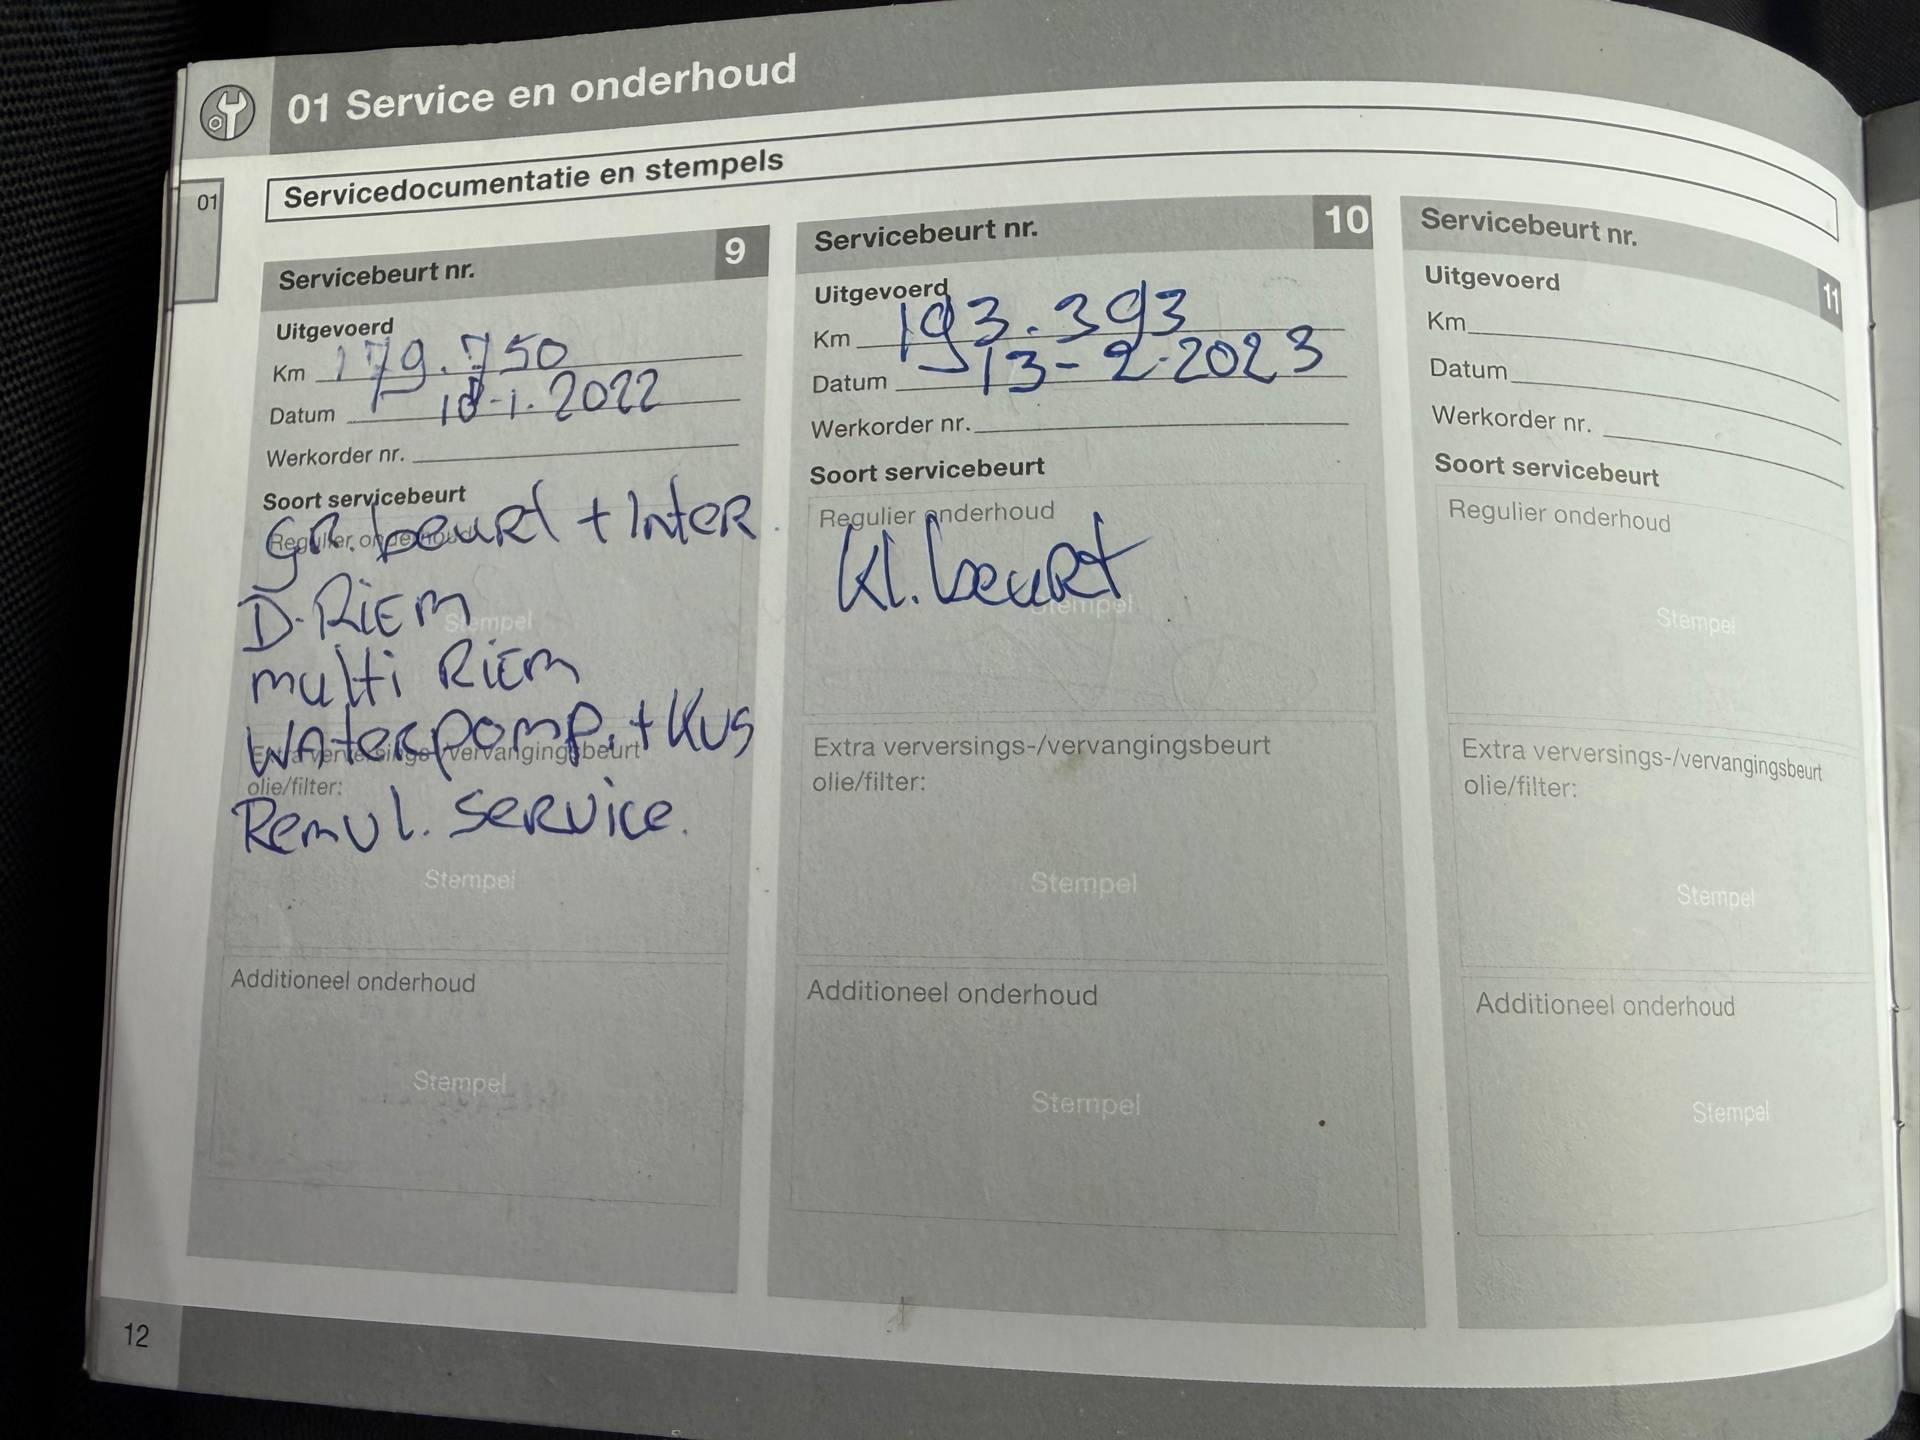 01 Service en onderhoud
01
Servicedocumentatie en stempels
Servicebeurt nr. 9
Uitgevoerd
Km 179.750
Datum 18-1-2022
Werkorder nr.
Soort servicebeurt
Regulier onderhoud
GR. beurt + Inter.
D. Riem
Stempel
multi Riem
Waterpomp. + Kus
Extra verversings-/vervangingsbeurt
olie/filter:
Remvl. service.
Stempel
Additioneel onderhoud
Stempel
Servicebeurt nr. 10
Uitgevoerd
Km 193.393
Datum 13-2-2023
Werkorder nr.
Soort servicebeurt
Regulier onderhoud
Kl. beurt
Stempel
Extra verversings-/vervangingsbeurt
olie/filter:
Stempel
Additioneel onderhoud
Stempel
Servicebeurt nr. 11
Uitgevoerd
Km
Datum
Werkorder nr.
Soort servicebeurt
Regulier onderhoud
Stempel
Extra verversings-/vervangingsbeurt
olie/filter:
Stempel
Additioneel onderhoud
Stempel
12